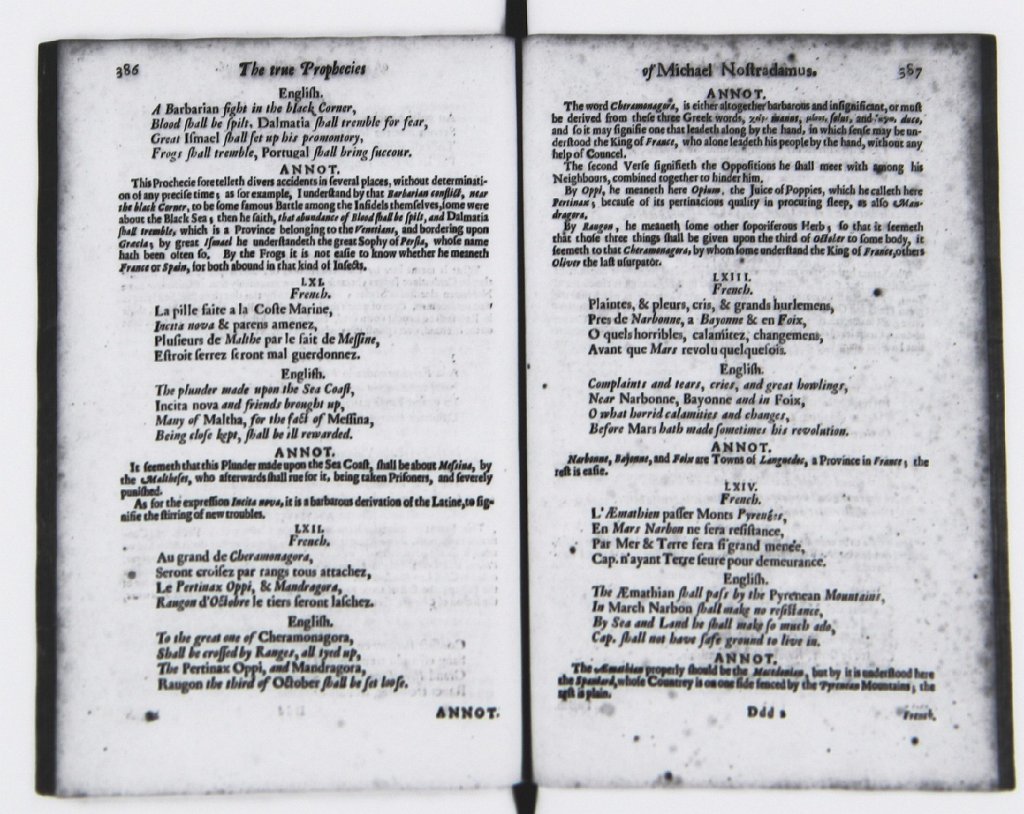 386 The true Prophecies
Engliſh.
A Barbarian fight in the black Corner,
Blood ſhall be ſpilt, Dalmatia ſhall tremble for fear,
Great Iſmael ſhall ſet up his promontory,
Frogs ſhall tremble, Portugal ſhall bring ſuccour.
ANNOT.
This Prochecie foretelleth divers accidents in ſeveral places, without determinati-
on of any preciſe time; as for example, I underſtand by that Barbarian conflict, near
the black Corner, to be ſome famous Battle among the Infidels themſelves, ſome were
about the Black Sea; then he ſaith, that abundance of Blood ſhall be ſpilt, and Dalmatia
ſhall tremble, which is a Province belonging to the Venetians, and bordering upon
Græcia; by great Iſmael he underſtandeth the great Sophy of Perſia, whoſe name
hath been often ſo. By the Frogs it is not eaſie to know whether he meaneth
France or Spain, for both abound in that kind of Inſects.
LXI.
French.
La pille faite a la Coſte Marine,
Incita nova & parens amenez,
Pluſieurs de Malthe par le fait de Meſſine,
Eſtroit ſerrez ſeront mal guerdonnez.
Engliſh.
The plunder made upon the Sea Coaſt,
Incita nova and friends brought up,
Many of Maltha, for the fact of Meſſina,
Being cloſe kept, ſhall be ill rewarded.
ANNOT.
It ſeemeth that this Plunder made upon the Sea Coaſt, ſhall be about Meſſina, by
the Maltheſes, who afterwards ſhall rue for it, being taken Priſoners, and ſeverely
puniſhed.
As for the expreſſion Incita nova, it is a barbarous derivation of the Latine, to ſig-
nifie the ſtirring of new troubles.
LXII.
French.
Au grand de Cheramonagora,
Seront croiſez par rangs tous attachez,
Le Pertinax Oppi, & Mandragora,
Raugon d'Octobre le tiers ſeront laſchez.
Engliſh.
To the great one of Cheramonagora,
Shall be croſſed by Ranges, all tyed up,
The Pertinax Oppi, and Mandragora,
Raugon the third of October ſhall be ſet looſe.
ANNOT.
of Michael Noſtradamus. 387
ANNOT.
The word Cheramonagora, is either altogether barbarous and inſignificant, or muſt
be derived from theſe three Greek words, manus, ſolus, and duco,
and ſo it may ſignifie one that leadeth along by the hand, in which ſenſe may be un-
derſtood the King of France, who alone leadeth his people by the hand, without any
help of Councel.
The ſecond Verſe ſignifieth the Oppoſitions he ſhall meet with among his
Neighbours, combined together to hinder him.
By Oppi, he meaneth here Opium, the Juice of Poppies, which he calleth here
Pertinax; becauſe of its pertinacious quality in procuring ſleep, as alſo Man-
dragora.
By Raugon, he meaneth ſome other ſoporiferous Herb; ſo that it ſeemeth
that thoſe three things ſhall be given upon the third of October to ſome body, it
ſeemeth to that Cheramonagora, by whom ſome underſtand the King of France, others
Oliver the laſt uſurpator.
LXIII.
French.
Plaintes, & pleurs, cris, & grands hurlemens,
Pres de Narbonne, a Bayonne & en Foix,
O quels horribles, calamitez, changemens,
Avant que Mars revolu quelqueſois.
Engliſh.
Complaints and tears, cries, and great howlings,
Near Narbonne, Bayonne and in Foix,
O what horrid calamities and changes,
Before Mars hath made ſometimes his revolution.
ANNOT.
Narbonne, Bajonne, and Foix are Towns of Languedoc, a Province in France; the
reſt is eaſie.
LXIV.
French.
L'Æmathien paſſer Monts Pyrenées,
En Mars Narbon ne ſera reſiſtance,
Par Mer & Terre ſera ſi grand menée,
Cap. n'ayant Terre ſeure pour demeurance.
Engliſh.
The Æmathian ſhall paſs by the Pyrenean Mountains,
In March Narbon ſhall make no reſiſtance,
By Sea and Land he ſhall make ſo much ado,
Cap. ſhall not have ſafe ground to live in.
ANNOT.
The Æmathian properly ſhould be the Macedonian, but by it is underſtood here
the Spaniard, whoſe Countrey is on one ſide fenced by the Pyrenean Mountains; the
reſt is plain.
Ddd 2 French.